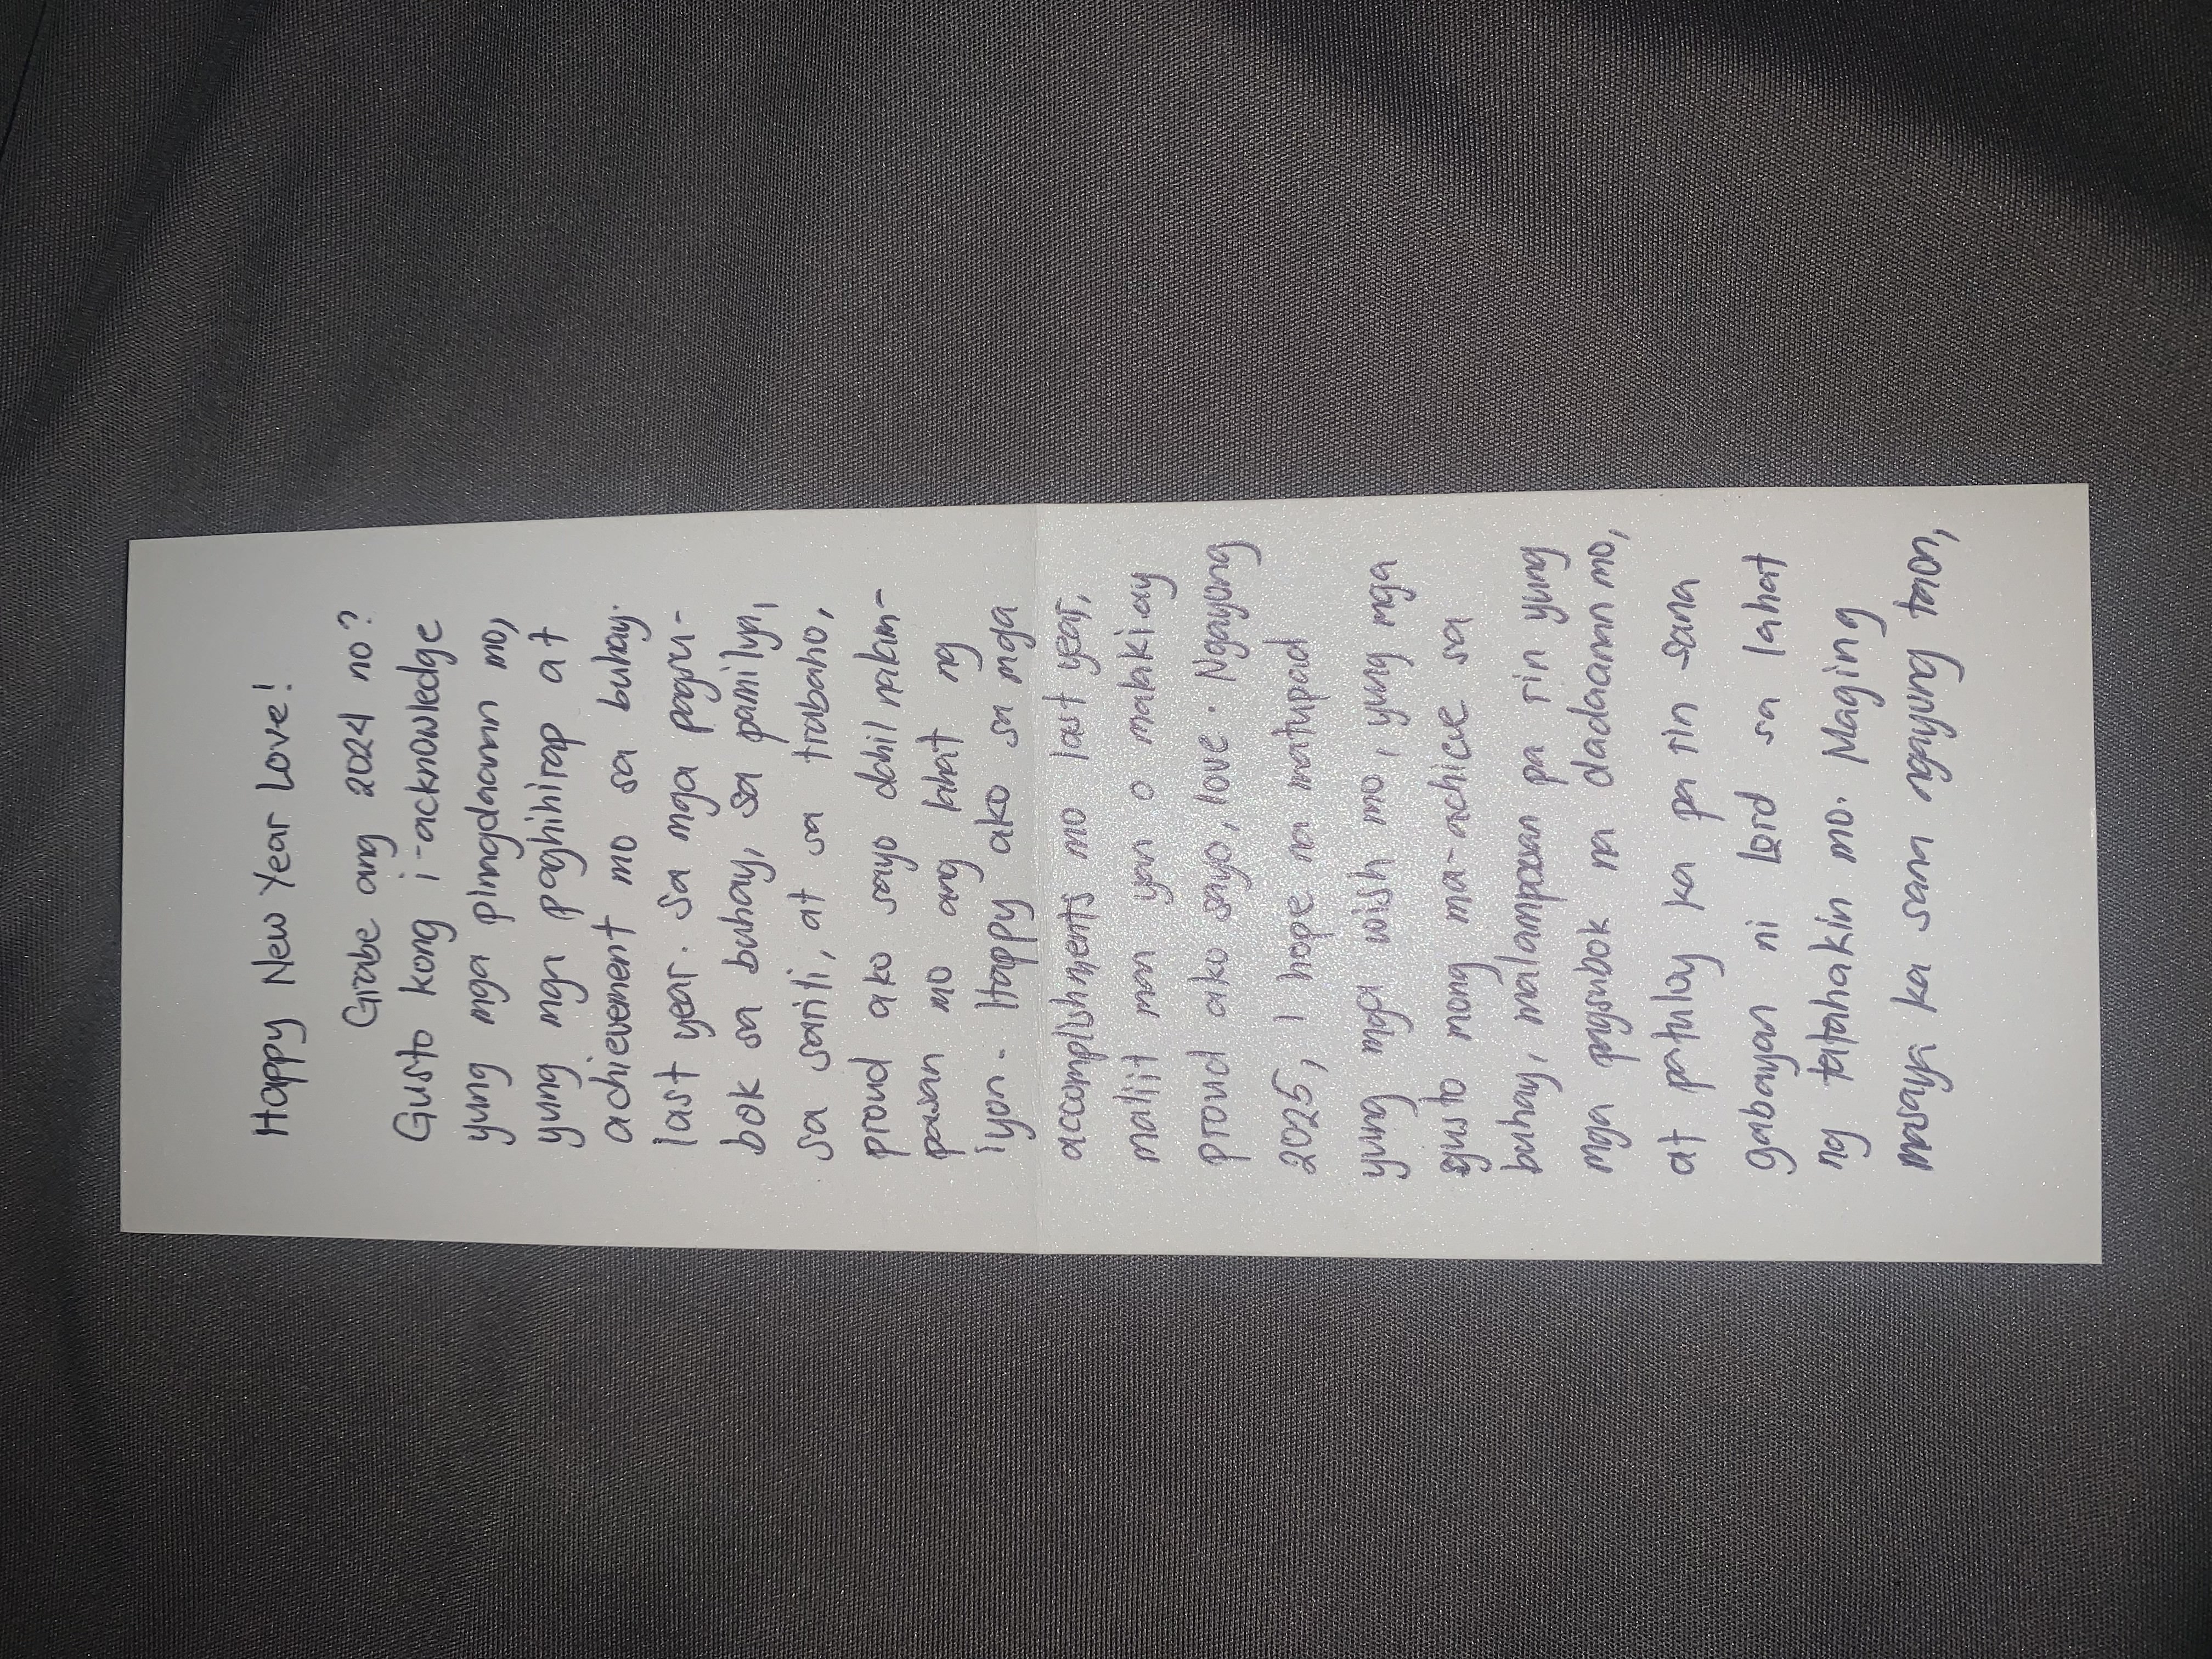 Happy New Year Love!
Grabe ang 2024 no?
Gusto kong i-acknowledge
yung mga pinagdaanan mo,
yung mga paghihirap at
achievement mo sa buhay.
last year. Sa mga pagsu-
bok sa buhay, sa pamilya,
sa sarili, at sa trabaho,
proud ako sayo dahil nalam-
pasan mo ang lahat ng
iyon. Happy ako sa mga
accomplishments mo last year,
maliit man yan o malaki ay
proud ako sayo, love. Ngayong
2025, I hope na matupad
yung mga wish mo, yung mga
gusto mong ma-achieve sa
buhay, malampasan pa rin yung
mga pagsubok na dadaanan mo,
at patuloy ka pa rin sana
gabayan ni Lord sa lahat
ng tatahakin mo. Maging
masaya ka sana ngayung taon,